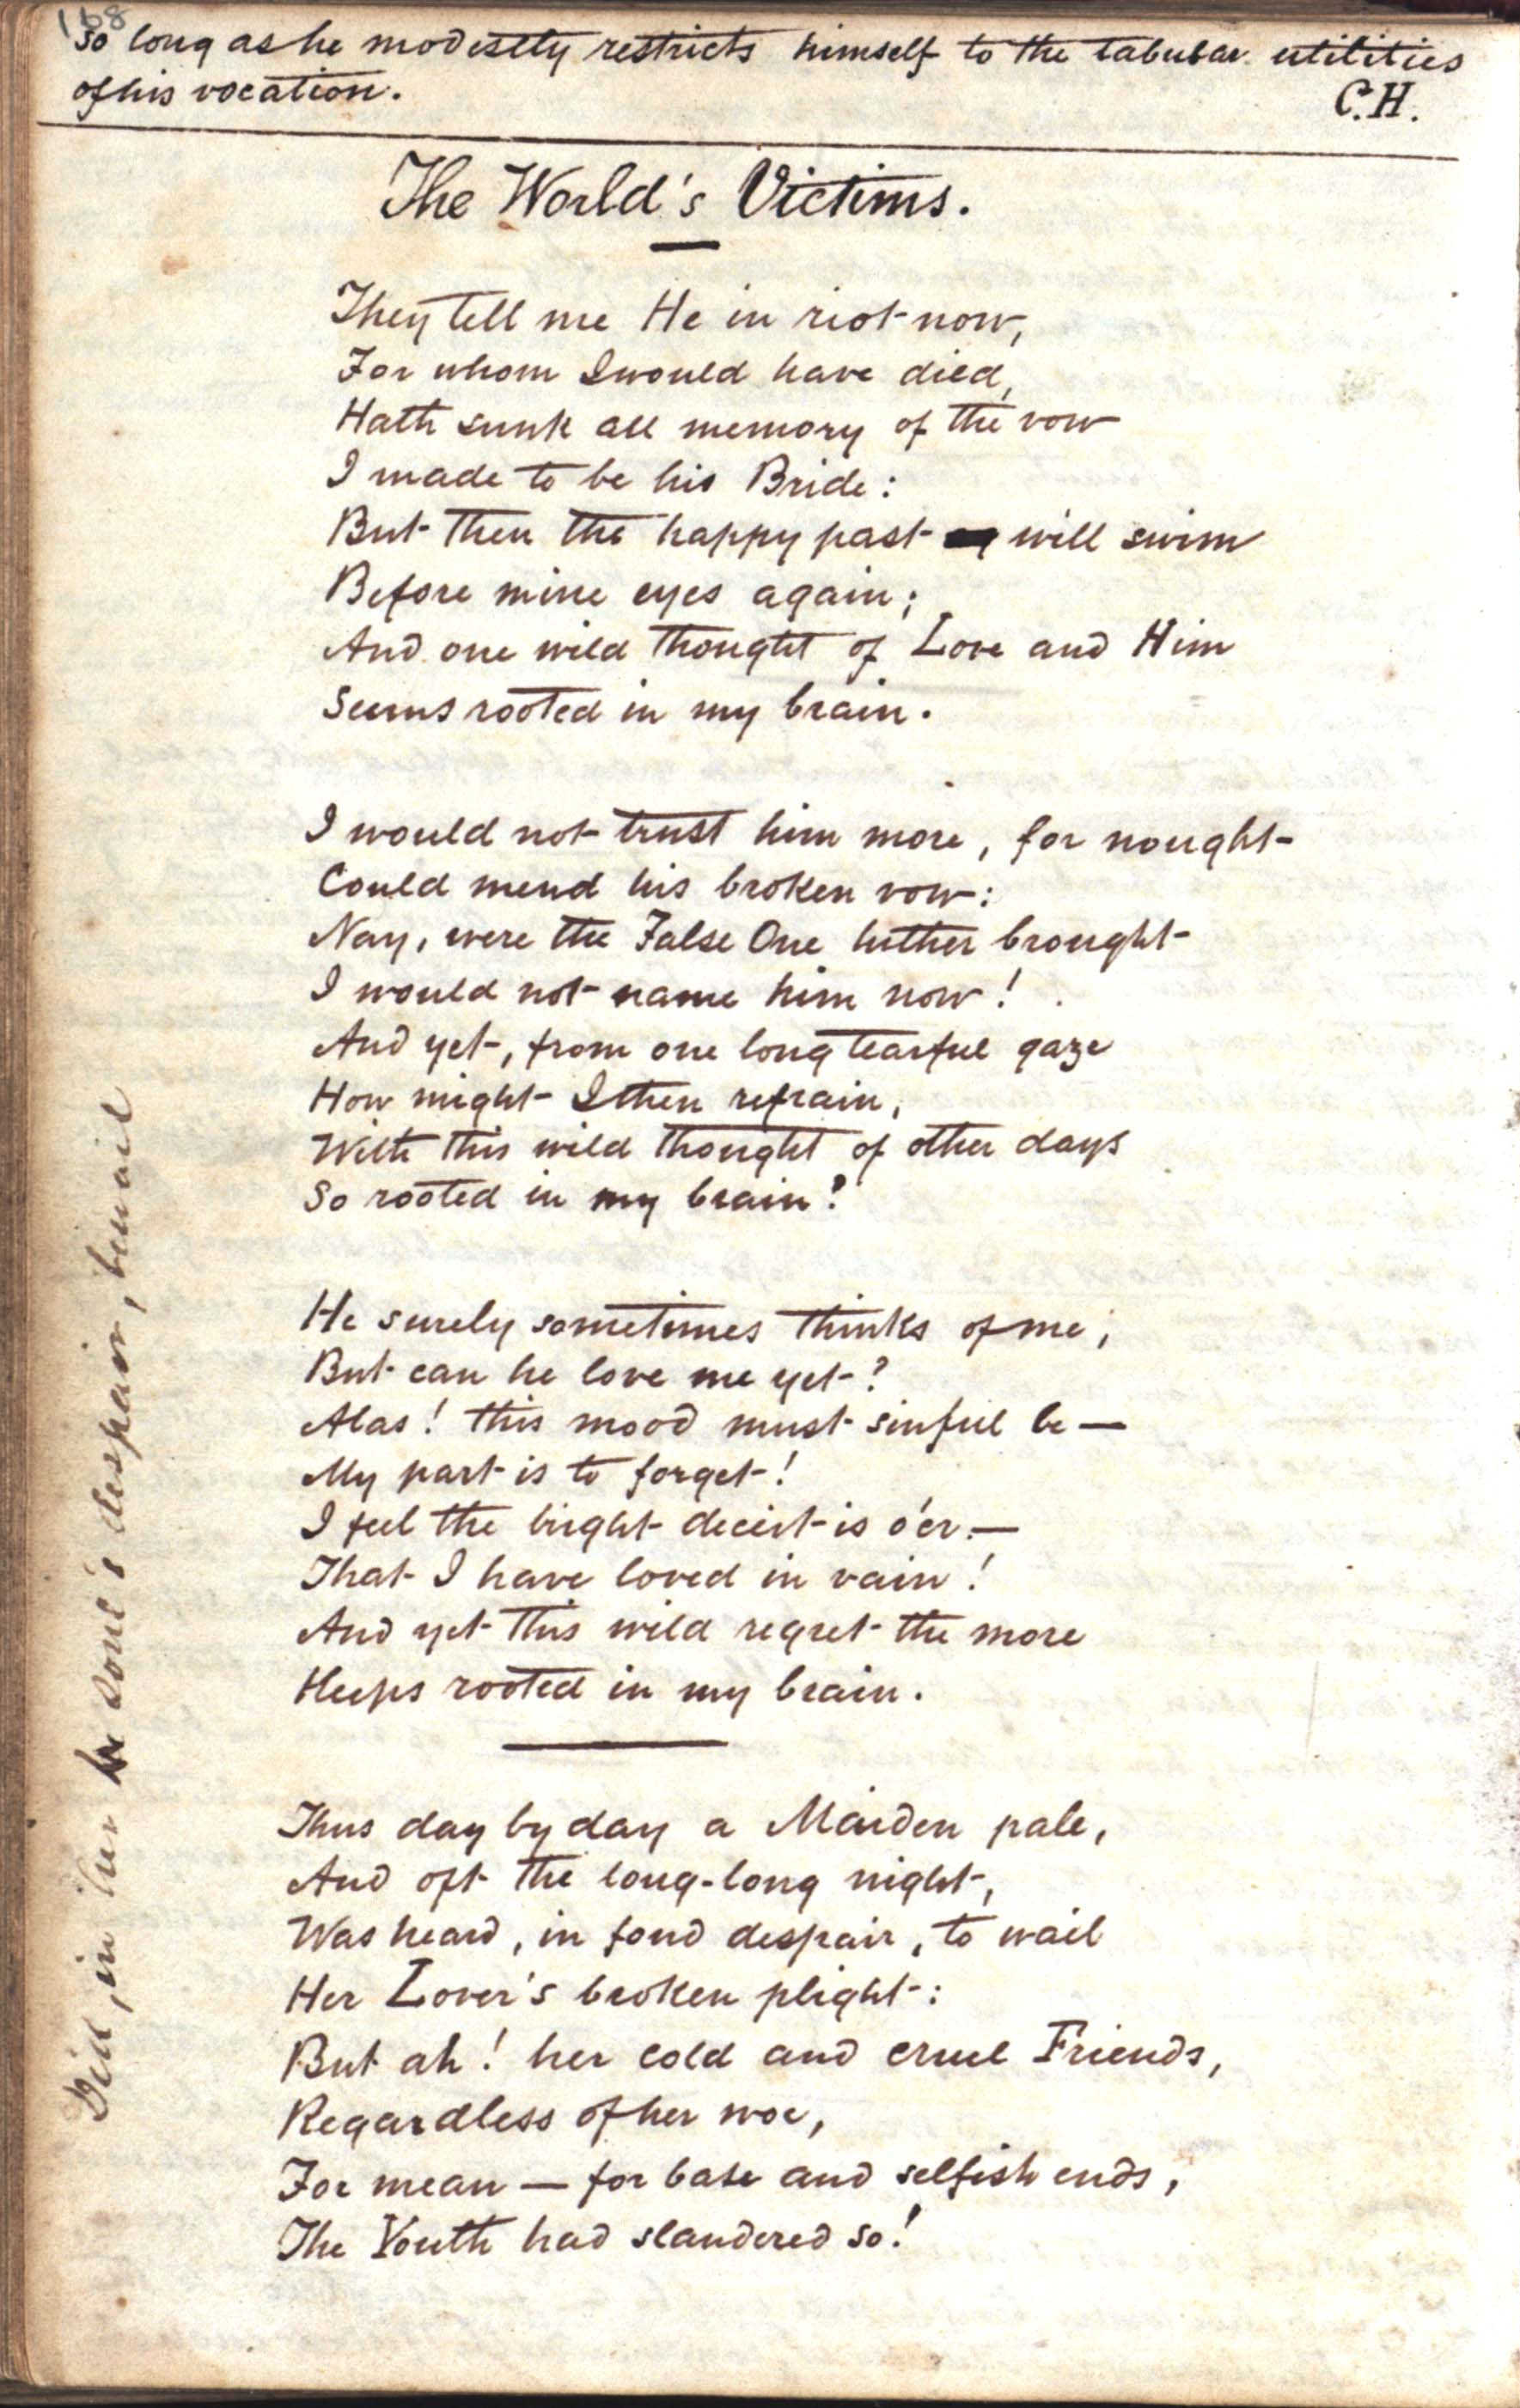 168
so long as he modestly restricts himself to the tabular utilities
of his vocation.
C.H.
The World's Victims.
They tell me He in riot now,
For whom I would have died,
Hath sunk all memory of the vow
I made to be his Bride:
But then the happy past will swim
Before mine eyes again;
And one wild thought of Love and Him
Seems rooted in my brain.
I would not trust him more, for nought
Could mend his broken vow:
Nay, were the False One hither brought
I would not name him now!
And yet, from one long tearful gaze
How might I then refrain,
With this wild thought of other days
So rooted in my brain?
He surely sometimes thinks of me;
But can he love me yet?
Alas! this mood must sinful be —
My part is to forget!
I feel the bright deceit is o'er. —
That I have loved in vain!
And yet this wild regret the more
Keeps rooted in my brain.
Thus day by day a Maiden pale,
And oft the long-long night,
Was heard, in fond despair, to wail
Her Lover's broken plight:
But ah! her cold and cruel Friends,
Regardless of her woe,
For mean — for base and selfish ends,
The Youth had slandered so!
Did, in her soul's despair, bewail